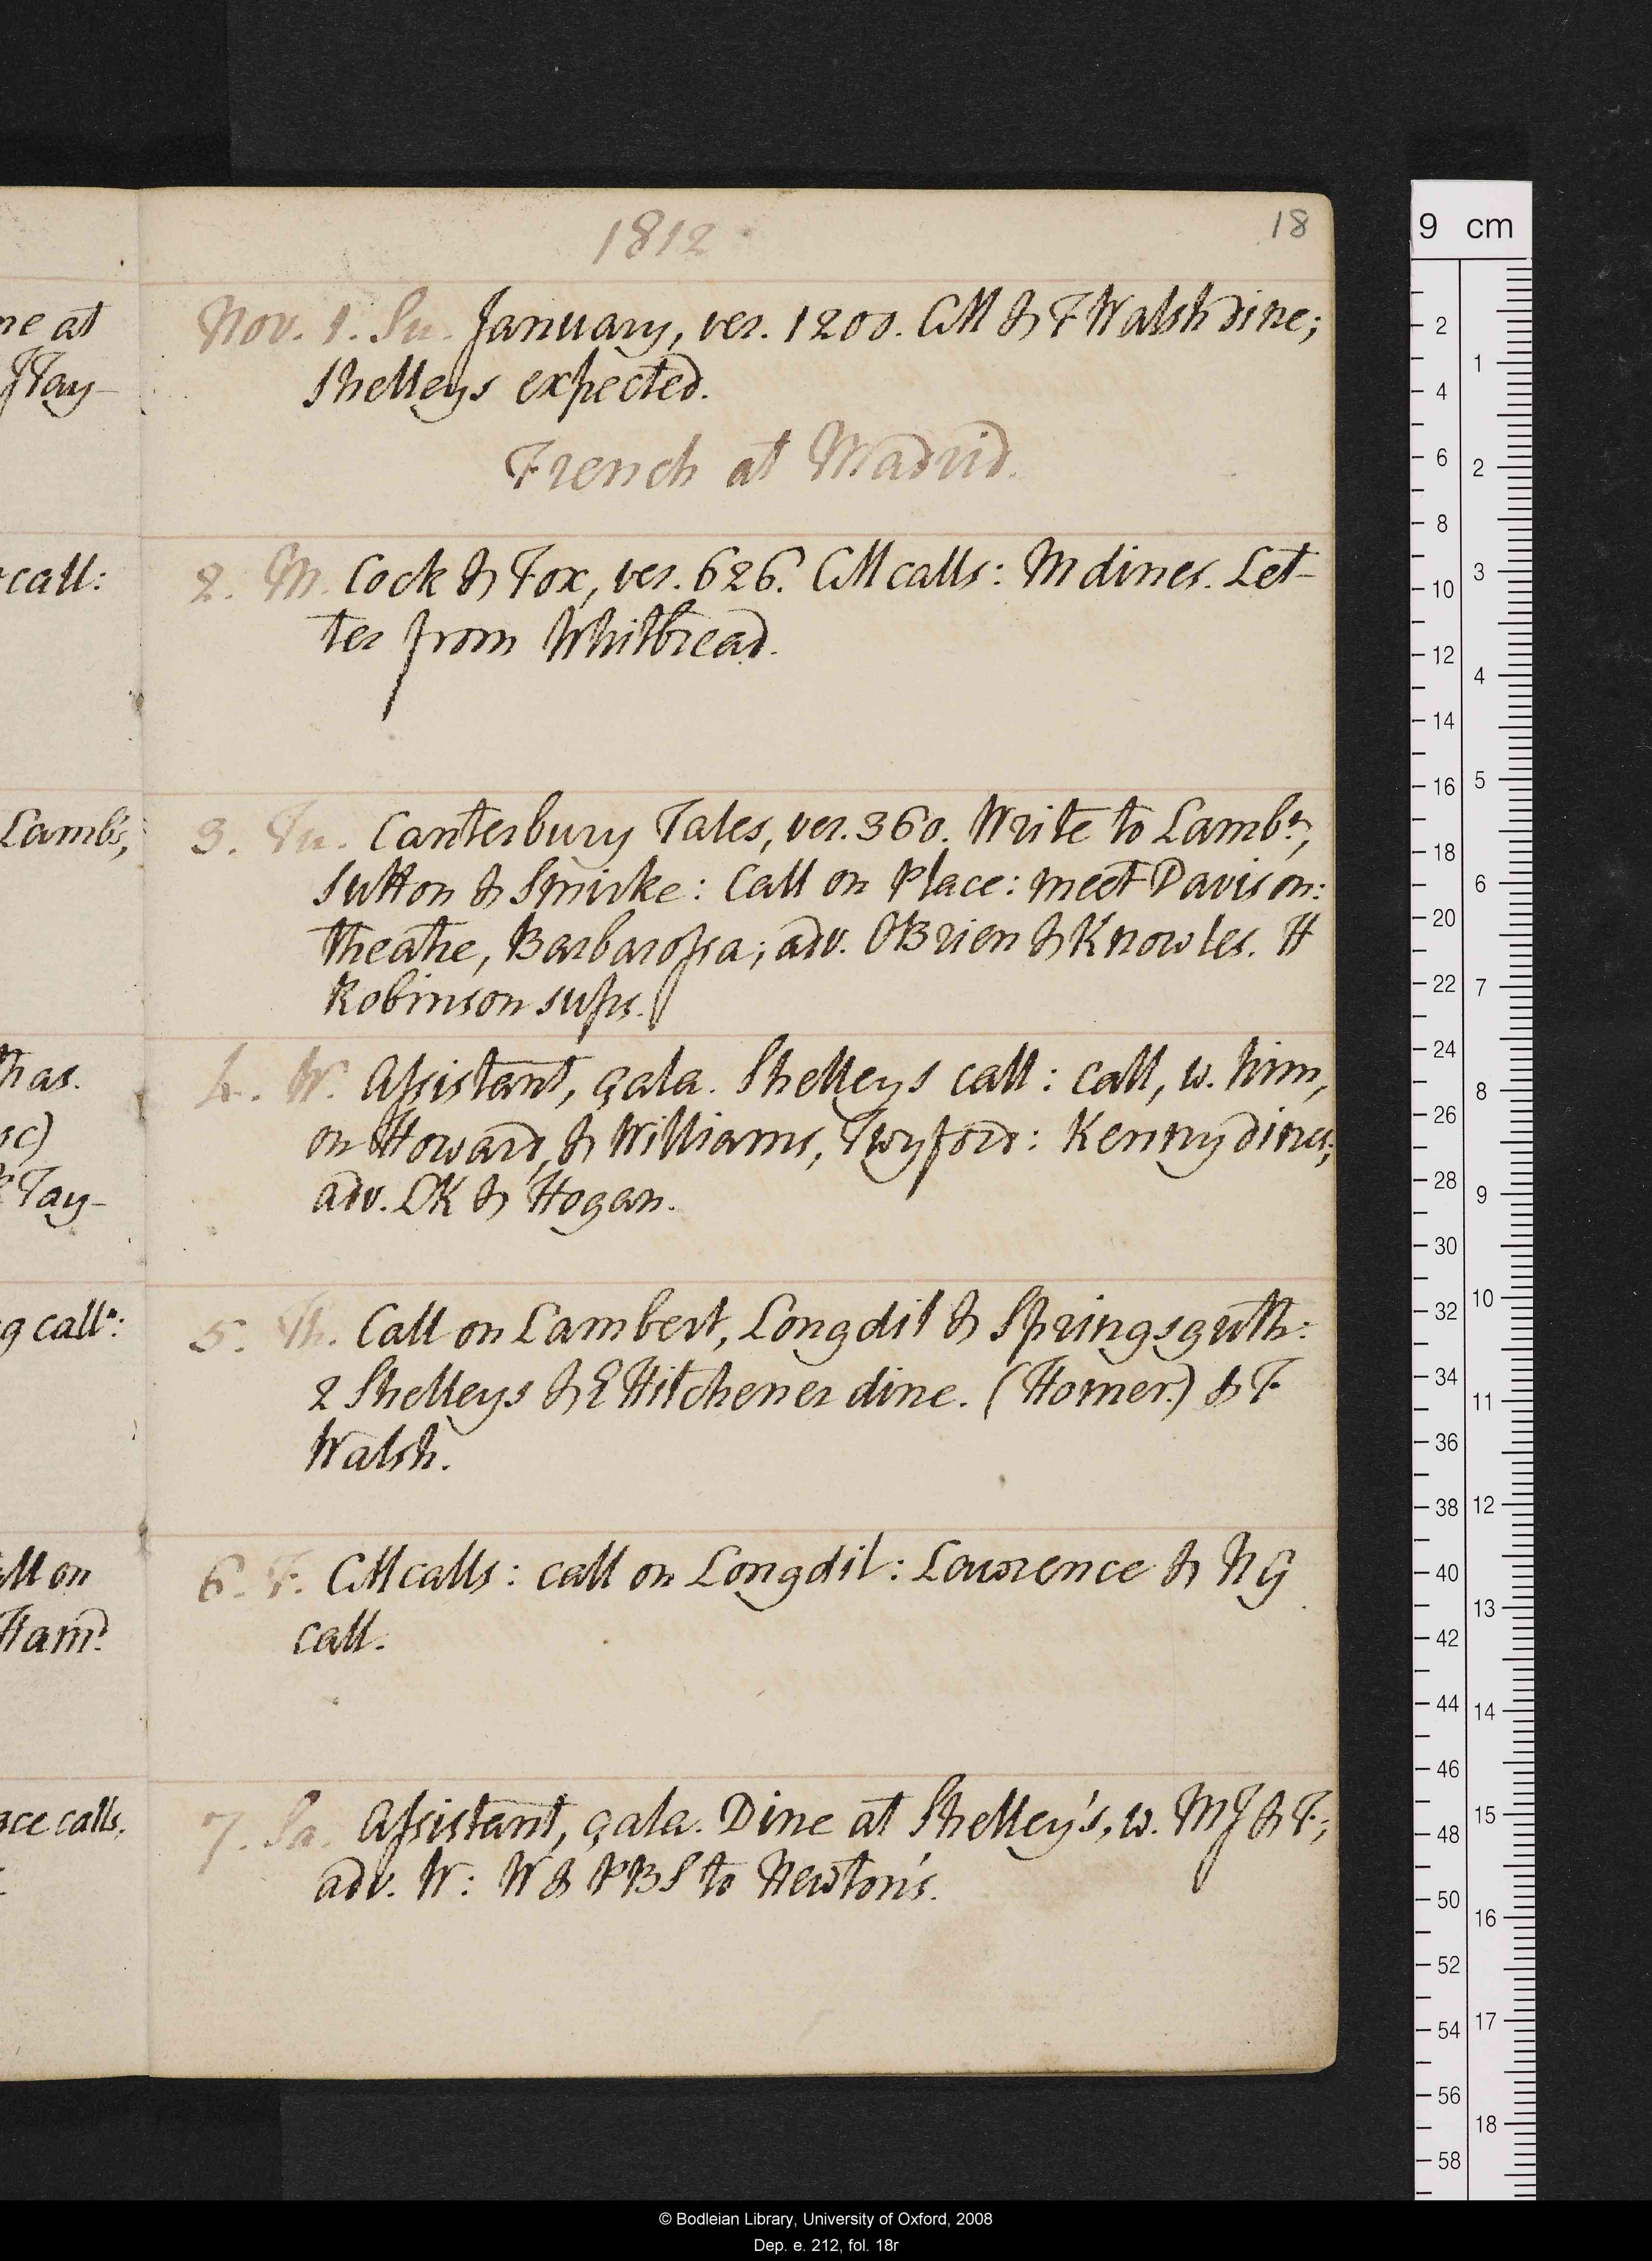 1812
18
Nov. 1. Su. January, ver. 1200. CM & F Walsh dine;
Shelleys expected.
French at Madrid.
2. M. Cock & Fox, ver. 626. CM calls: M dines. Let-
ter from Whitbread.
3. Tu. Canterbury Tales, ver. 360. Write to Lambt,
Sutton & Smirke: Call on Place: meet Davison:
theatre, Barbarossa; adv. OBrien & Knowles. H
Robinson sups.
4. W. Assistant, gala. Shelleys call: call, w. him,
on Howard, & Williams, Twyford: Kenny dines;
adv. LK & Hogan.
5. Th. Call on Lambert, Longdil & Springsguth:
2 Shelleys & E Hitchener dine. (Horner.) & F
Walsh.
6. F. CM calls: call on Longdil: Lawrence & N G
call.
7. Sa. Assistant, gala. Dine at Shelley's, w. MJ & F;
adv. W: W & PBS to Newton's.
ne at
Tay-
call:
Lamb's,
has.
Tay-
g calln:
ll on
Ham.d
ace calls.
9 cm
2
4
6
8
10
12
14
16
18
20
22
24
26
28
30
32
34
36
38
40
42
44
46
48
50
52
54
56
58
1
2
3
4
5
6
7
8
9
10
11
12
13
14
15
16
17
18
© Bodleian Library, University of Oxford, 2008
Dep. e. 212, fol. 18r